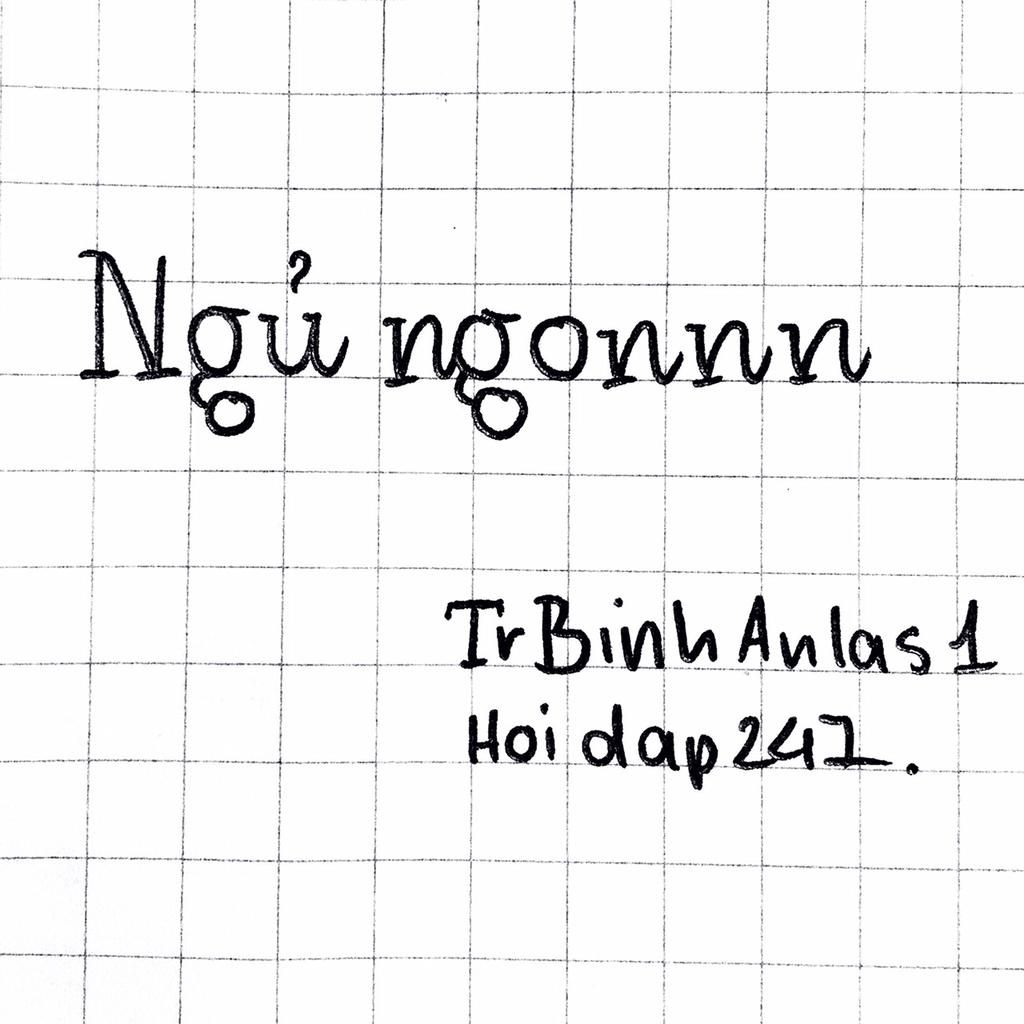 Ngủ ngonnn
TrBinhAnlas1
Hoidap247.